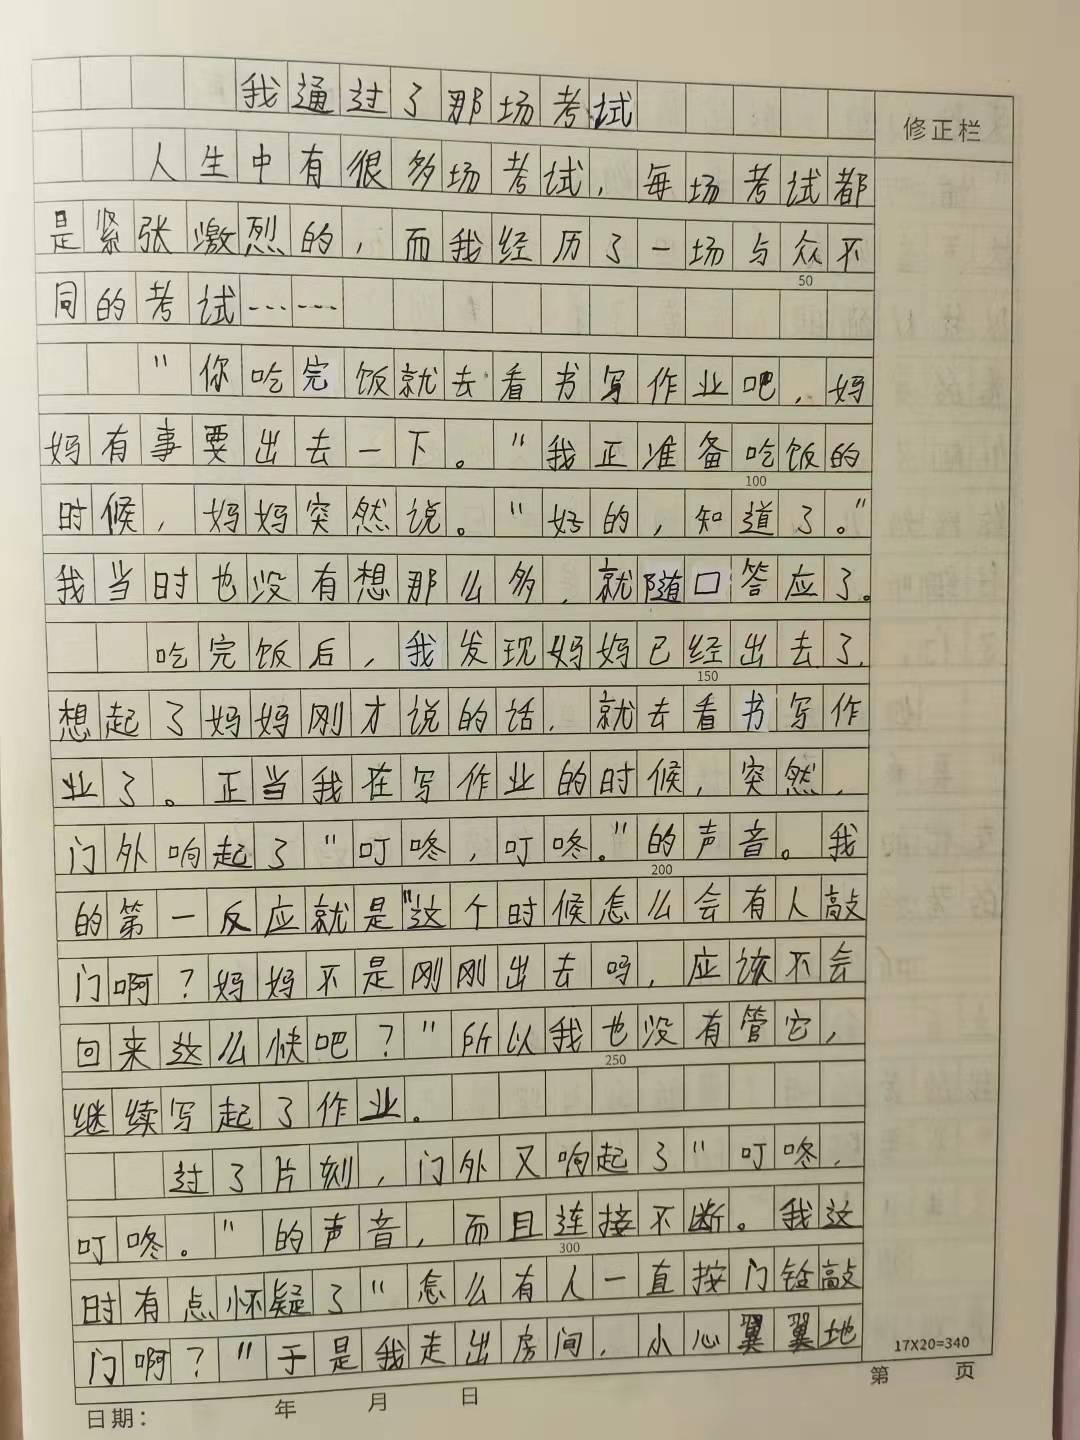 我通过了那场考试
修正栏
人生中有很多场考试，每场考试都
是紧张激烈的，而我经历了一场与众不
50
同的考试……
"你吃完饭就去看书写作业吧，妈
妈有事要出去一下。"我正准备吃饭的
100
时候，妈妈突然说。"好的，知道了。"
我当时也没有想那么多，就随口答应了。
吃完饭后，我发现妈妈已经出去了，
150
想起了妈妈刚才说的话，就去看书写作
业了。正当我在写作业的时候，突然，
门外响起了"叮咚，叮咚。"的声音。我
200
的第一反应就是"这个时候怎么会有人敲
门啊？妈妈不是刚刚出去吗，应该不会
回来这么快吧？"所以我也没有管它，
250
继续写起了作业。
过了片刻，门外又响起了"叮咚，
叮咚。"的声音，而且连接不断。我这
300
时有点怀疑了"怎么有人一直按门铨敲
门啊？"于是我走出房间，小心翼翼地
17X20=340
日期： 年 月 日 第 页